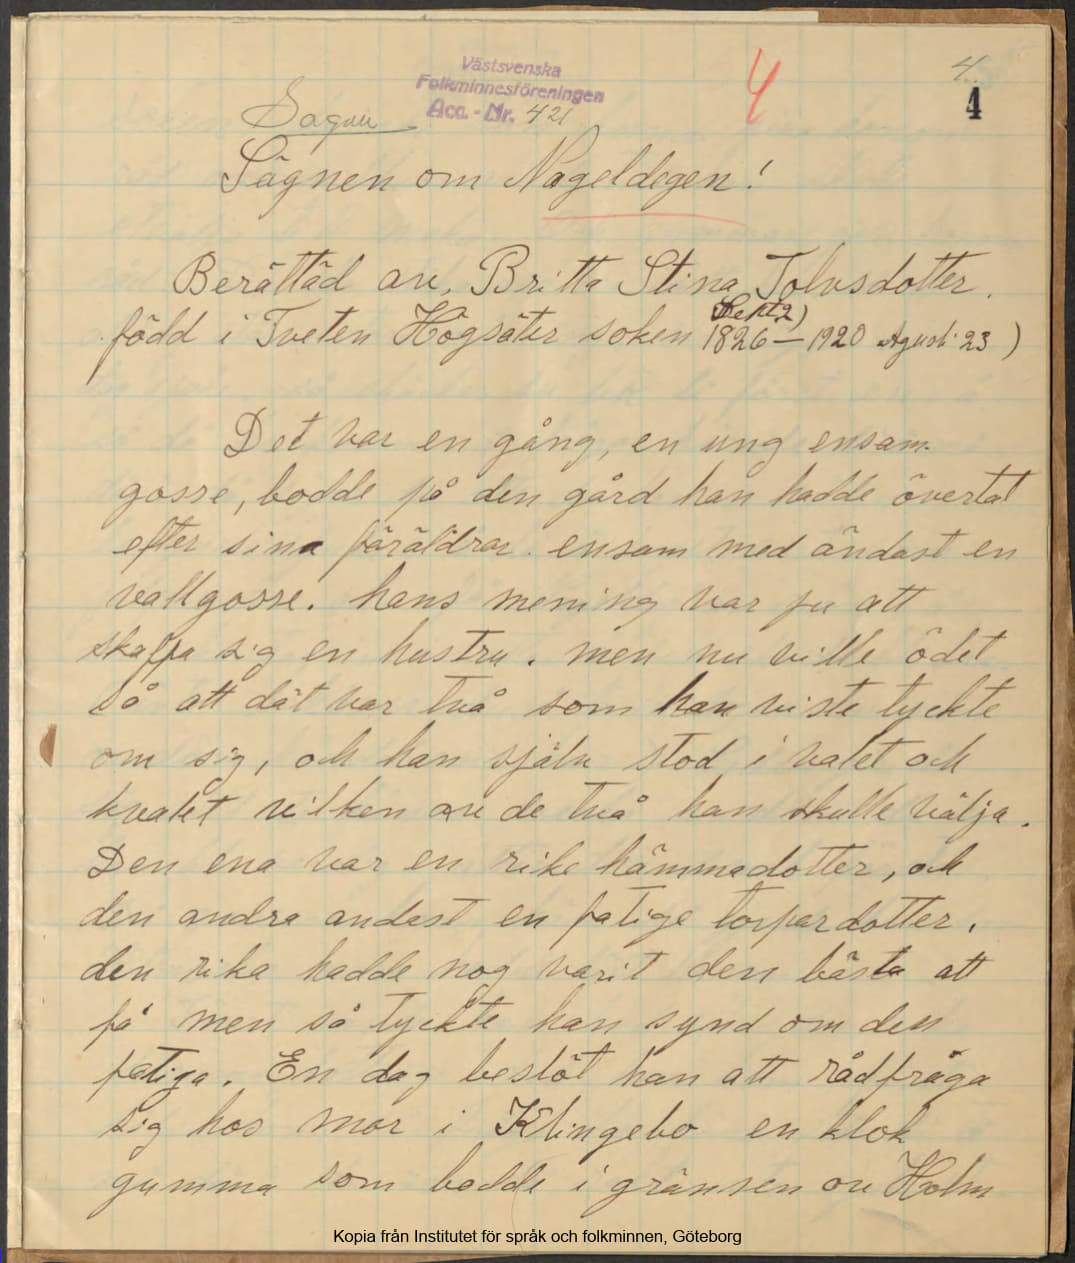 4
Västsvenska
Folkminnesföreningen
Acc.-Nr. 421
4
4
Sagan
Sägnen om Nageldegen!
Berättäd av, Britta Stina Tolvsdotter.
(Sept 2)
född i Tveten Högsäter soken 1826 — 1920 Agusti 23)
Det var en gång, en ung ensam-
gosse, bodde på den gård han hadde övertat
efter sina föräldrar. ensam med ändast en
vallgosse. hans mening var ju att
skaffa sig en hustru. men nu ville ödet
så att dät var två som han viste tyckte
om sig, och han själv stod i valet och
kvalet vilken av de två han skulle välja.
Den ena var en rike hämmadotter, och
den andra andast en fatige torpardotter.
den rika hadde nog varit den bästa att
få men så tyckte han synd om den
fatiga. En dag beslöt han att rådfråga
sig hos mor i Klingebo en klok
gumma som bodde i gränsen av Holm
Kopia från Institutet för språk och folkminnen, Göteborg